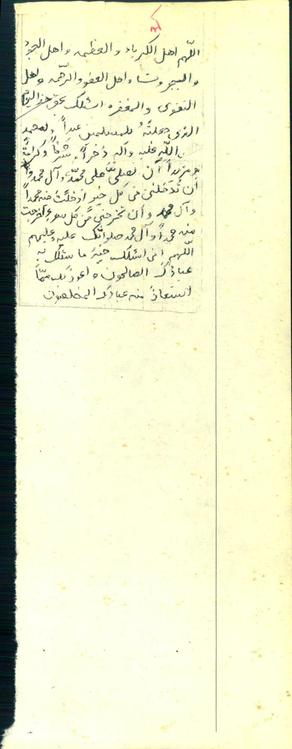 اللهم اهل الكبرياء والعظمه و اهل الجود
والجبروت و اهل العفو والرحمه و اهل
التقوى والمغفره اسئلك بحق هذا اليوم
الذى جعلته للمسلمين عيداً و لمحمد
صلى الله عليه وآله ذخراً و شرفاً و كرامتاً
و مزيداً أن تصلى على محمد وآل محمد و
أن تدخلنى فى كل خير ادخلت فيه محمداً
و آل محمد و أن تخرجنى من كل سوء اخرجت
منه محمداً و آل محمد صلواتك عليه و عليهم
اللهم انى اسئلك خير ما سئلك به
عبادك الصالحون و اعوذ بك ممّا
استعاذ منه عبادك المخلصون